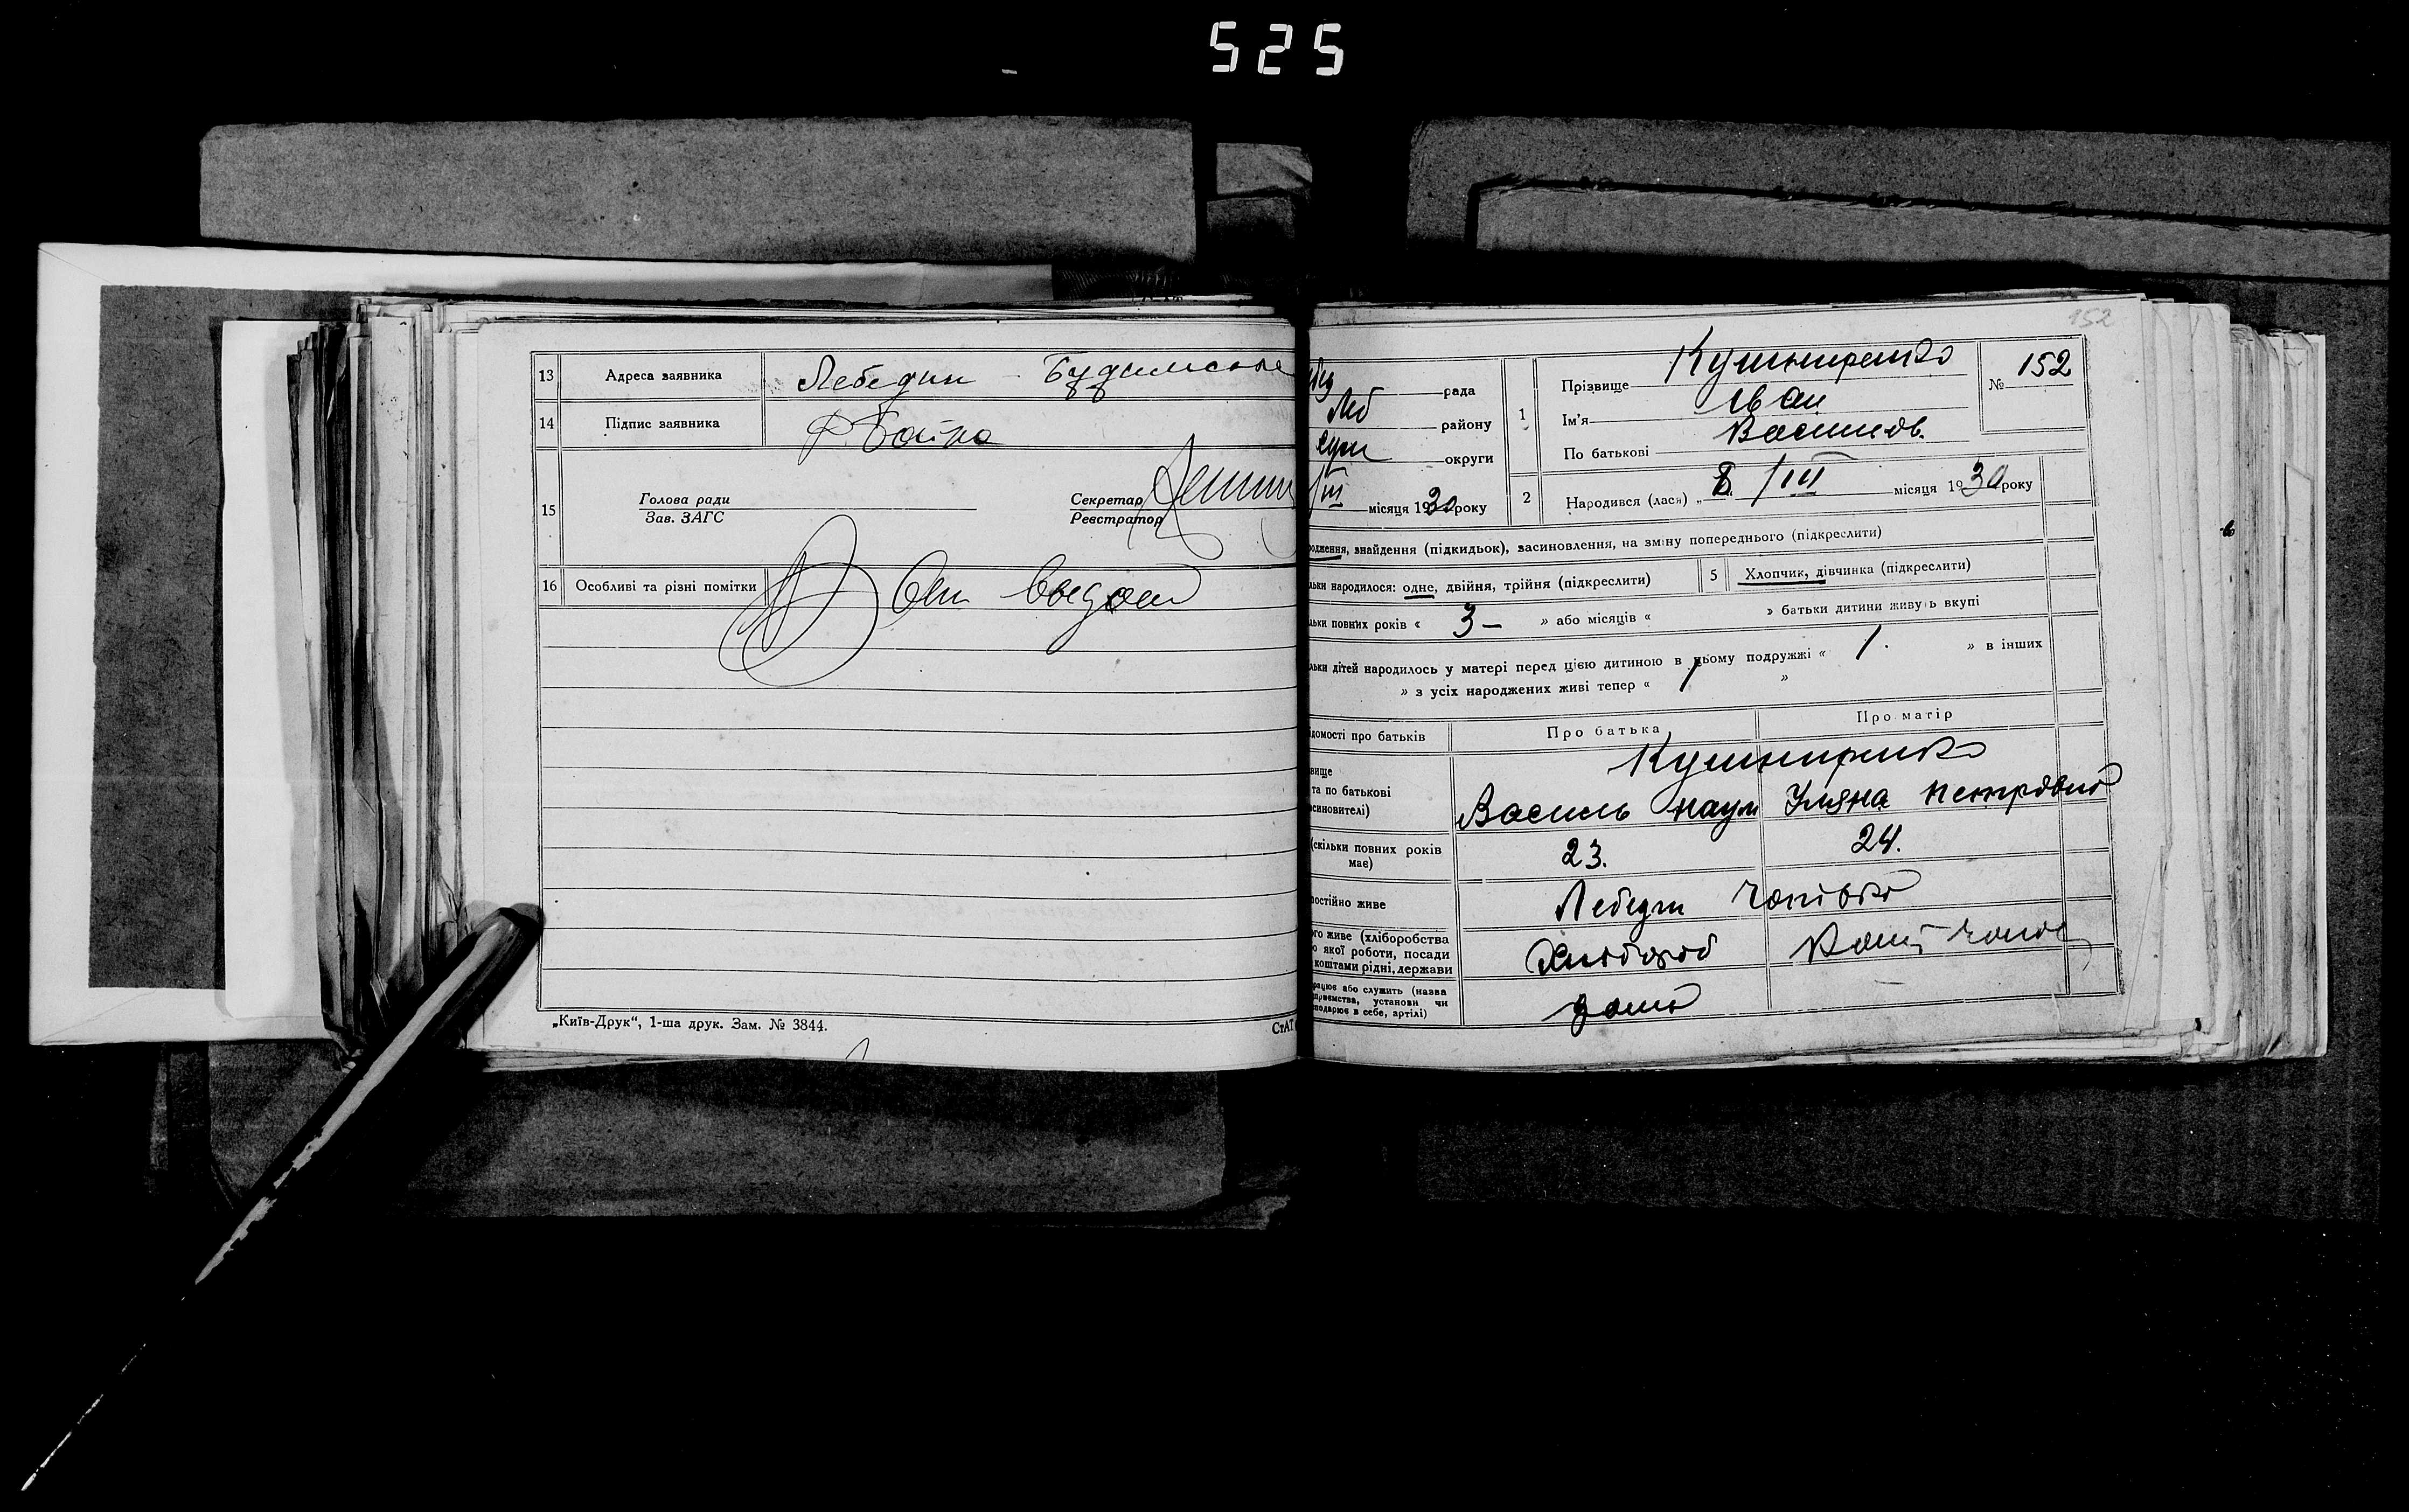 525
13 Адреса заявника Лебедин Будилська
14 Підпис заявника
15 Голова ради
Зав. ЗАГС
Секретар
Реєстратор
16 Особливі та різні помітки
„Київ-Друк“, 1-ша друк. Зам. № 3844.
СтАТ
152
рада
Леб району
Сум округи
III місяця 1930 року
1 Прізвище Кушниренко
Ім'я Іван
По батькові Васильов.
№ 152
2 Народився (лася) „ /III місяця 1930 року
одження, знайдення (підкидьок), засиновлення, на зміну попереднього (підкреслити)
льки народилося: одне, двійня, трійня (підкреслити) 5 Хлопчик, дівчинка (підкреслити)
льки повних років « 3 – » або місяців « » батьки дитини живуть вкупі
льки дітей народилось у матері перед цією дитиною в цьому подружжі « 1. » в інших
» з усіх народжених живі тепер « 1 »
ідомості про батьків Про батька Про матір
вище
та по батькові
синовителі)
Кушниренко
Василь Наум Уляна Петровна
(скільки повних років
має)
23. 24.
постійно живе Лебедин
ого живе (хліборобства
о якої роботи, посади
коштами рідні, держави
Хлібороб
рацює або служить (назва
приємства, установи чи
сподарює в себе, артілі)
дома